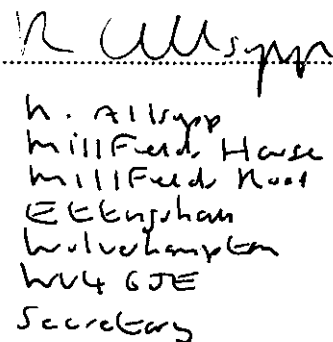 N Allsopp
N. Allsopp
Millfields House
Millfields Road
Ettingshall
Wolverhampton
WV4 6JE
Secretary